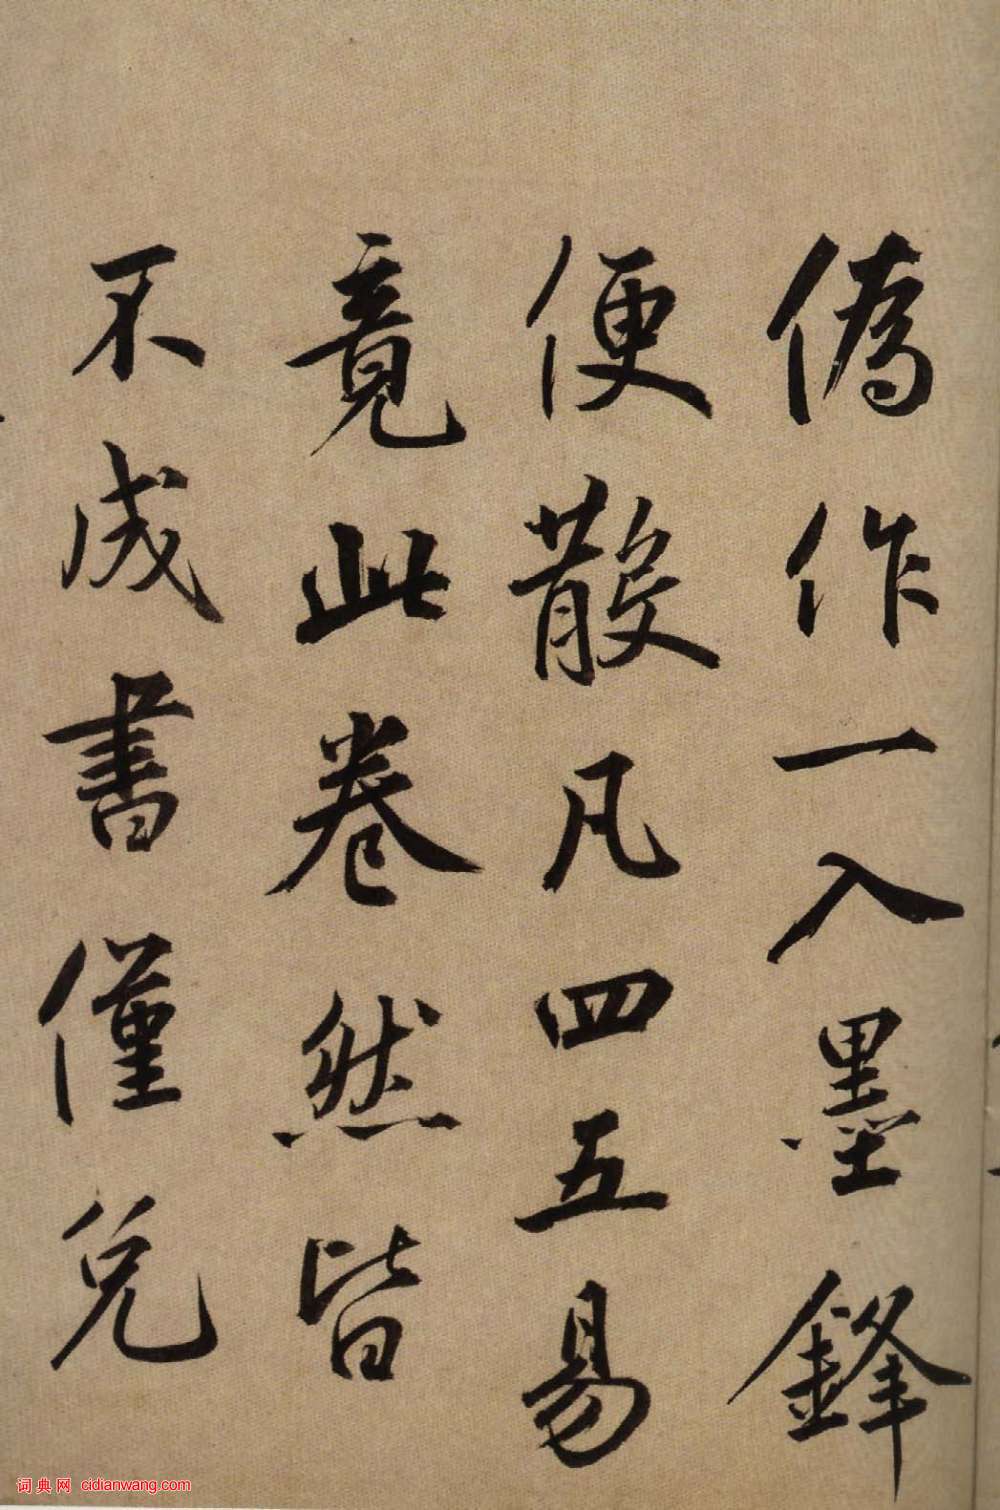 偽作一入墨鋒
便散凡四五易
竟此卷然皆
不成書僅免
词典网 cidianwang.com